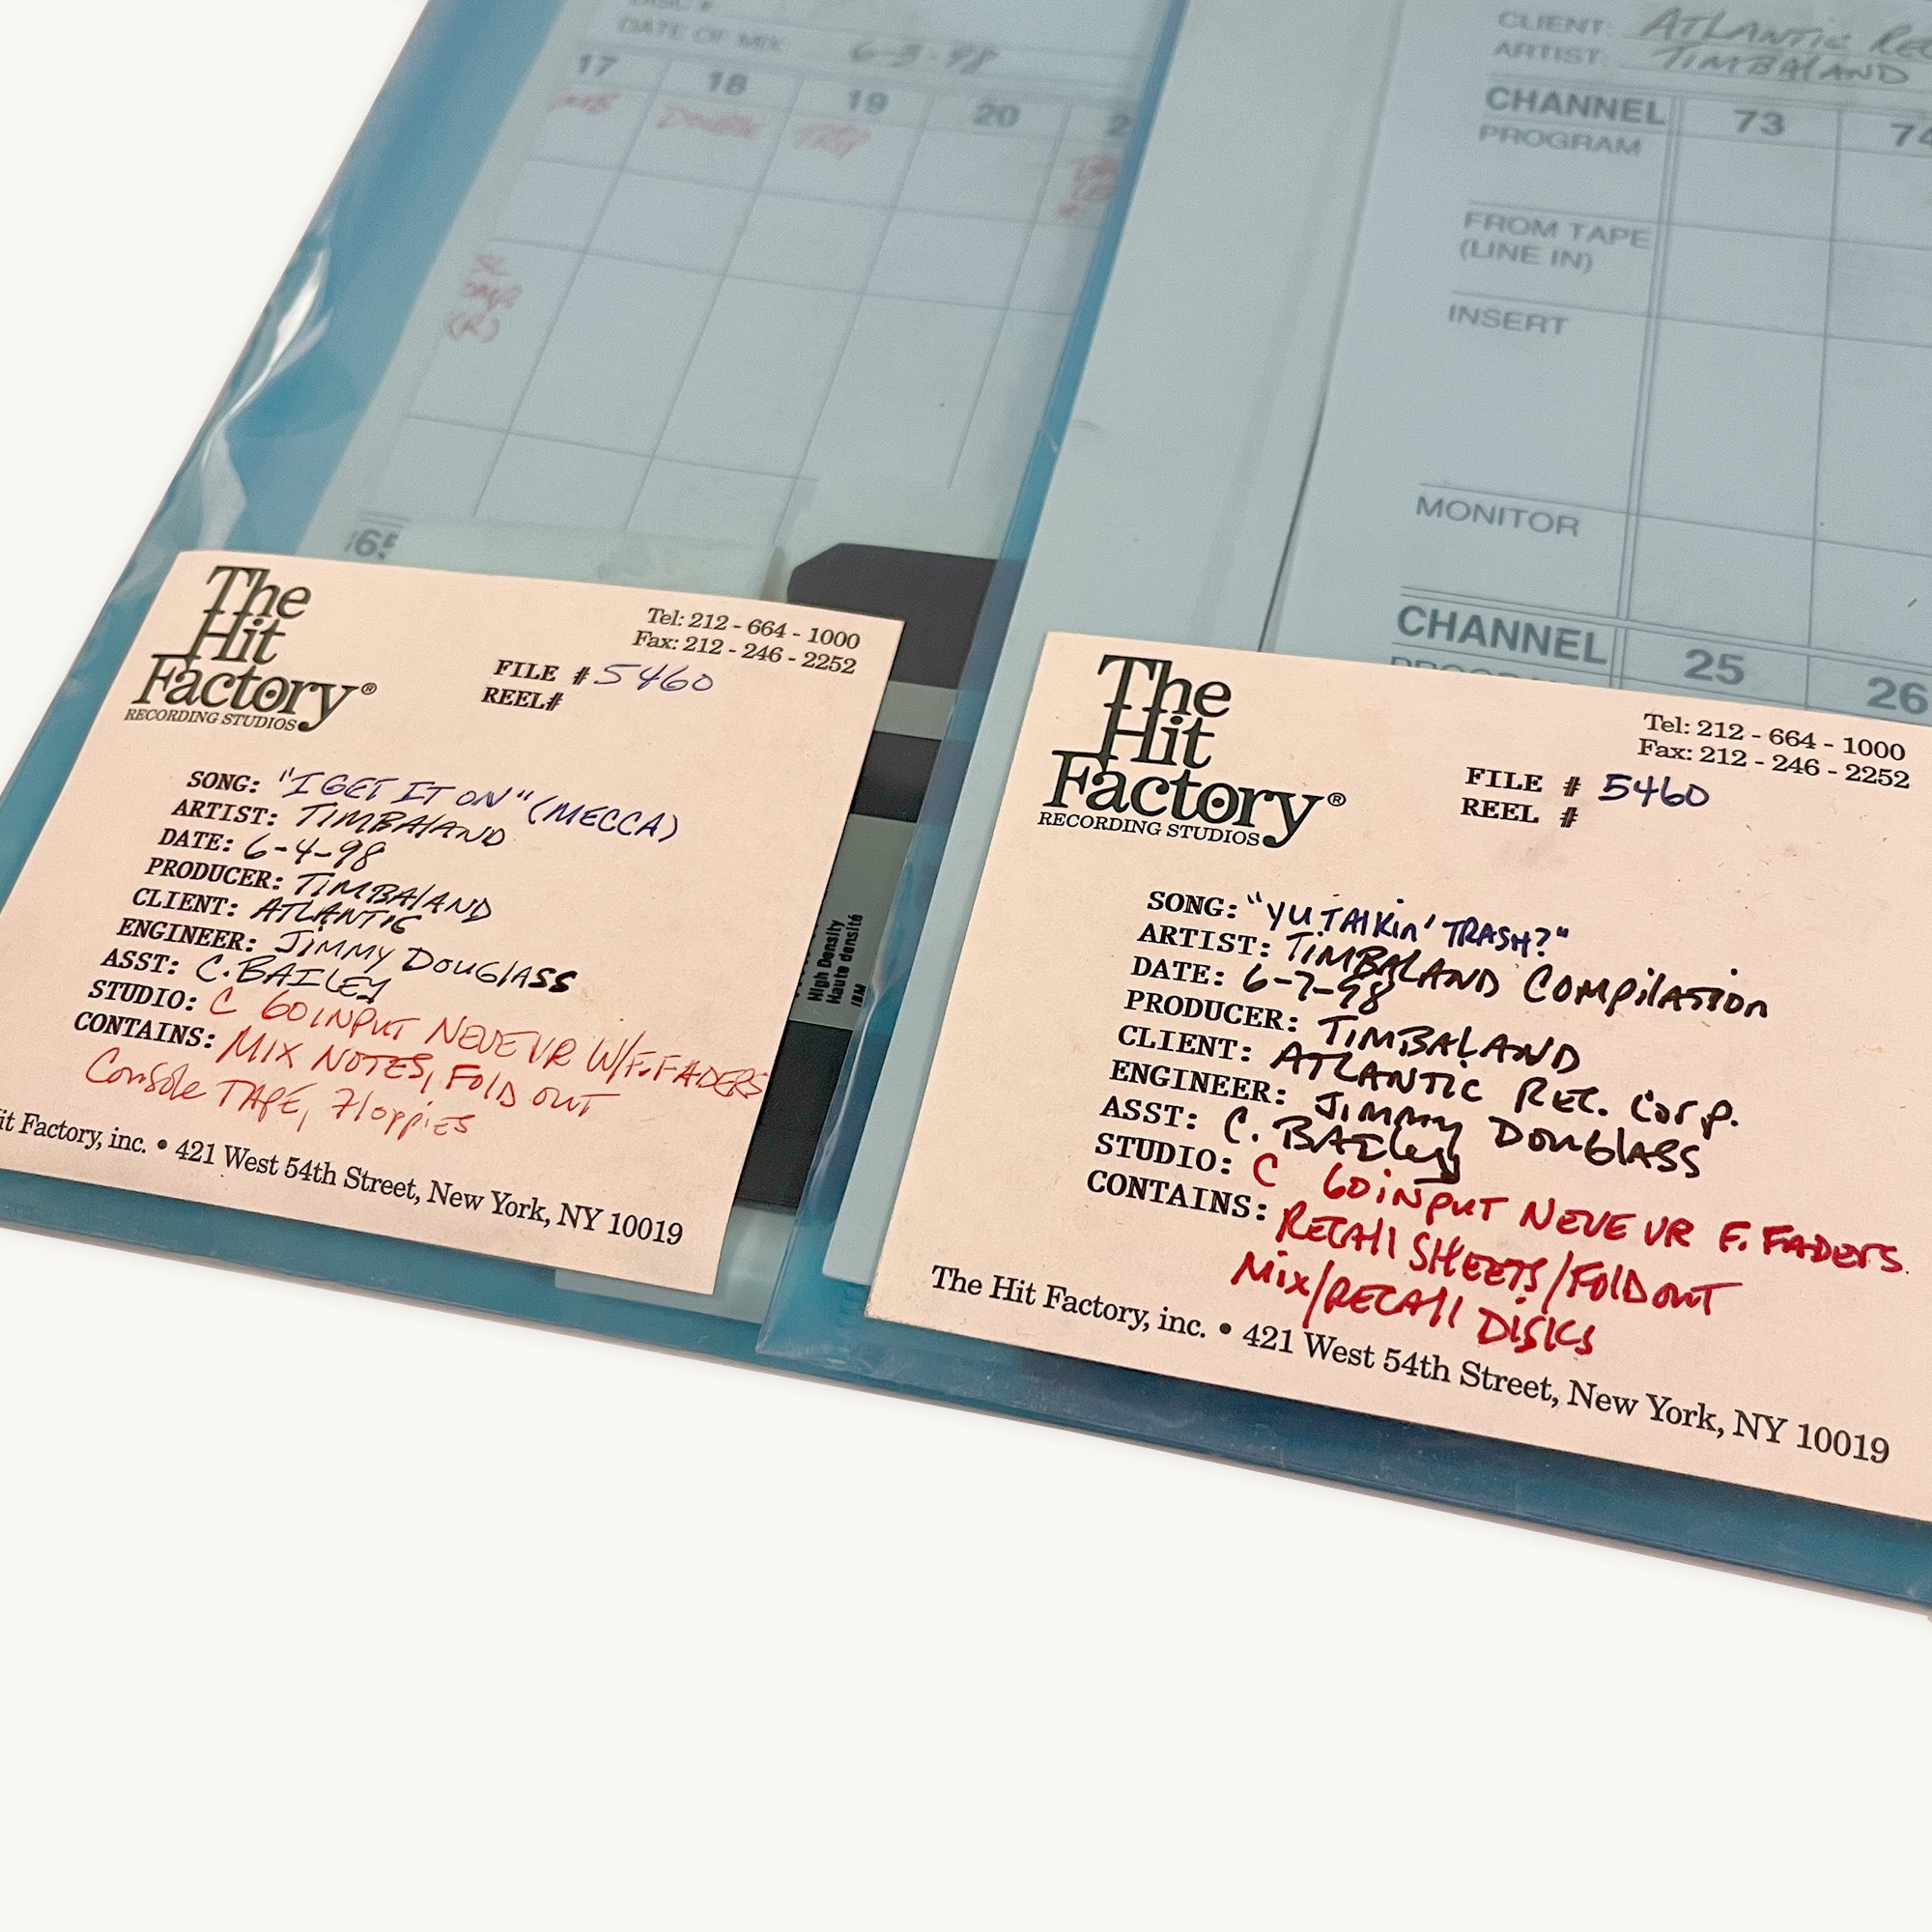 DATE OF MIX: 6-3-98
17 18 19 20 2
DOUBLE TRIP
(R)
CLIENT: ATLANTIC REC
ARTIST: TIMBALAND
CHANNEL 73 74
PROGRAM
FROM TAPE
(LINE IN)
INSERT
MONITOR
CHANNEL 25 26
The
Hit
Factory®
RECORDING STUDIOS
Tel: 212 - 664 - 1000
Fax: 212 - 246 - 2252
FILE # 5460
REEL#
SONG: "I GET IT ON" (MECCA)
ARTIST: TIMBALAND
DATE: 6-4-98
PRODUCER: TIMBALAND
CLIENT: ATLANTIC
ENGINEER: JIMMY DOUGLASS
ASST: C. BAILEY
STUDIO: C 60 INPUT NEVE VR W/F. FADERS
CONTAINS: MIX NOTES, FOLD OUT
Console TAPE, Floppies
it Factory, inc. • 421 West 54th Street, New York, NY 10019
High Density
Haute densité
IBM
The
Hit
Factory®
RECORDING STUDIOS
Tel: 212 - 664 - 1000
Fax: 212 - 246 - 2252
FILE # 5460
REEL #
SONG: "YU TALKIN' TRASH?"
ARTIST: TIMBALAND COMPILATION
DATE: 6-7-98
PRODUCER: TIMBALAND
CLIENT: ATLANTIC REC. Corp.
ENGINEER: JIMMY DOUGLASS
ASST: C. BAILEY
STUDIO: C 60 INPUT NEVE VR F. FADERS.
CONTAINS: RECALL SHEETS/FOLDOUT
MIX/RECALL DISKS
The Hit Factory, inc. • 421 West 54th Street, New York, NY 10019